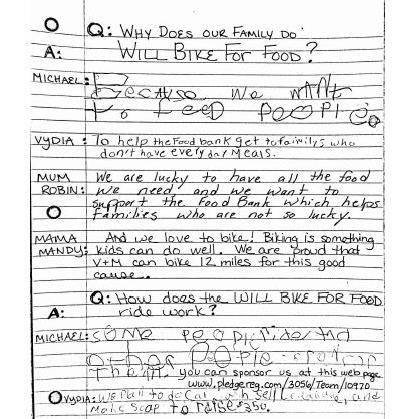 Q: WHY DOES OUR FAMILY DO
A: WILL BIKE FOR FOOD?
MICHAEL: Because we want
to feed people.
VYDIA: To help the Food bank get to familys who
don't have every day Meals.
MUM We are lucky to have all the food
ROBIN: we need, and we want to
support the Food Bank which helps
families who are not so lucky.
MAMA And we love to bike! Biking is something
MANDY: kids can do well. We are proud that
V+M can bike 12 miles for this good
cause.
Q: How does the WILL BIKE FOR FOOD
A: ride work?
MICHAEL: some people ride and
other people sponsor
them. you can sponsor us at this web page
www.pledgereg.com/3056/Team/10970
VYDIA: We Plan to do Car wash Sell and
Make Soap to raise $350.